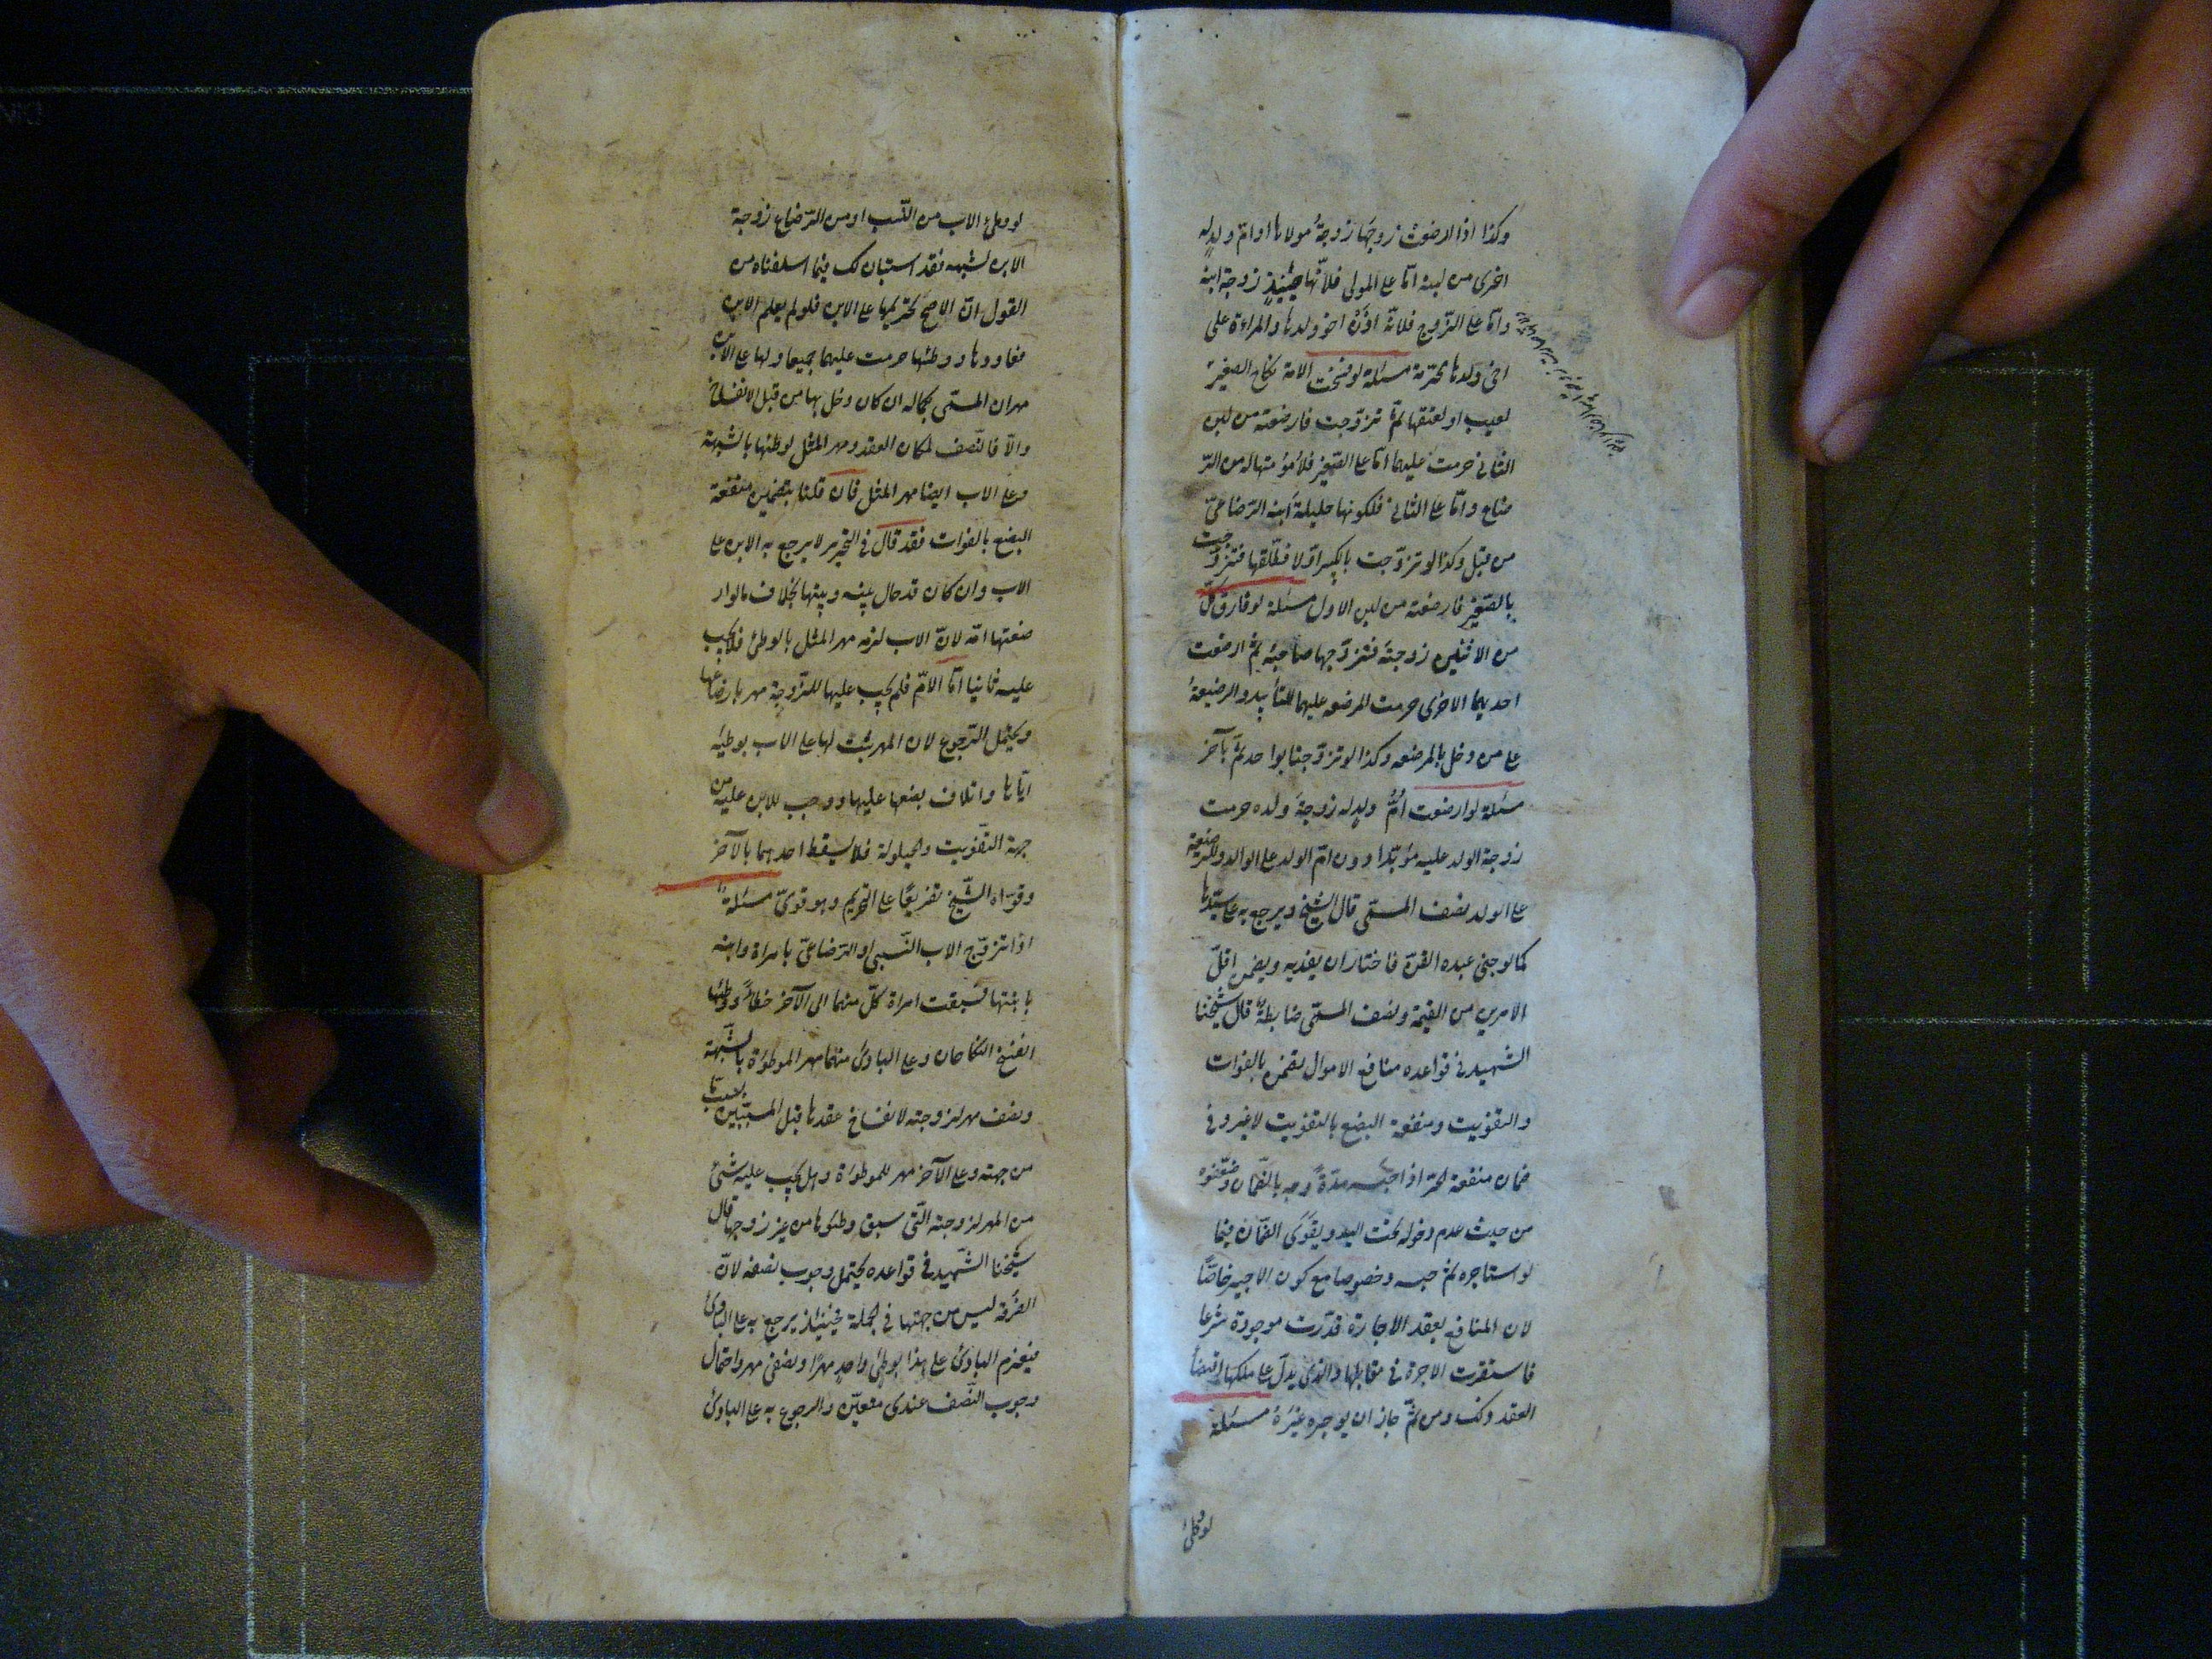 وكذا اذا ارضعت زوجها زوجة مولاها او ام ولد له
اخرى من لبنه اما على المولى فلانها حينئذ زوجة ابنه
واما على الزوج فلانه اذن اخو ولدها والمراءة على
اخى ولدها محترمة مسئلة لو فسخت الامة نكاح الصغير
لعيب او لعتقها ثم تزوجت فارضعته من لبن
الثانى حرمت عليهما اما على الصغير فلامومتها له من الر
ضاع واما على الثانى فلكونها حليلة ابنه الرضاعى
من قبل وكذا لو تزوجت بالكبير اولا فطلقها فتزوجت
بالصغير فارضعته من لبن الاول مسئلة لو فارق كل
من الاثنين زوجته فتزوجها صاحبه ثم ارضعت
احديهما الاخرى حرمت المرضعه عليهما للتأبيد والرضيعة
على من دخل بالمرضعه وكذا لو تزوجتا بواحد ثم بآخر
مسئلة لو ارضعت ام ولد له زوجة ولده حرمت
زوجة الولد عليه مؤبدا دون ام الولد على الوالد وللرضيعة
على الولد نصف المسمى قال الشيخ ويرجع به على سيدها
كما لو جنى عبده القن فاختار ان يفديه ويضمن اقل
الامرين من القيمة ونصف المسمى ضابطة قال شيخنا
الشهيد فى قواعده منافع الاموال تضمن بالفوات
والتفويت ومنفعة البضع بالتفويت لا غير وفى
ضمان منفعة الحر اذا حبسه مدة وجه بالضمان وضعفوه
من حيث عدم دخوله تحت اليد ويقوى الضمان فيما
لو استاجره ثم حبسه وخصوصا مع كون الاجير خاصا
لان المنافع بعقد الاجارة قدرت موجودة شرعا
فاستقرت الاجرة فى مقابلها والذى يدل على ملكها اقتضاء
العقد ذلك ومن ثم جاز ان يوجره غيره مسئلة
لو وطئ
لو وطئ الاب من النسب او من الرضاع زوجة
الابن لشبهه فقد استبان لك فيما اسلفناه من
القول ان الاصح تحريمها على الابن فلو لم يعلم الابن
فعاودها ووطئها حرمت عليهما جميعا ولها على الابن
مهران المسمى بكماله ان كان دخل بها من قبل الانفساخ
والا فالنصف لمكان العقد ومهر المثل لوطئها بالشبهة
وعلى الاب ايضا مهر المثل فان قلنا بتضمين منفعة
البضع بالفوات فقد قال فى التحرير لا يرجع به الابن على
الاب وان كان قد حال بينه وبينها بخلاف ما لو ار
ضعتها امه لان الاب لزمه مهر المثل بالوطئ فلا يجب
عليه ثانيا اما الام فلم يجب عليها للزوجة مهر بارضاعها
ويحتمل الرجوع لان المهر يثبت لها على الاب بوطيه
اياها واتلاف بضعها عليها ووجب للابن عليه من
جهة التفويت والحيلولة فلا يسقط احدهما بالآخر
وقواه الشيخ تفريعا على التحريم وهو قوى مسئلة
اذا تزوج الاب النسبى او الرضاعى بامراة وابنه
بابنتها فسبقت امراة كل منهما الى الآخر خطأ ووطئها
انفسخ النكاحان وعلى البادئ منهما مهر الموطوءة بالشبهة
ونصف مهر لزوجته لانفساخ عقدها قبل المسيس بسبب
من جهته وعلى الآخر مهر للموطوءة وهل يجب عليه شئ
من المهر لزوجته التى سبق وطئوها من غير زوجها قال
شيخنا الشهيد فى قواعده يحتمل وجوب نصفه لان
الفرقة ليس من جهتها فى الجملة فحينئذ يرجع به على البادئ
فيغرم البادئ على هذا بوطئ واحد مهرا ونصفى مهر واحتمال
وجوب النصف عندى متعين والرجوع به على البادئ